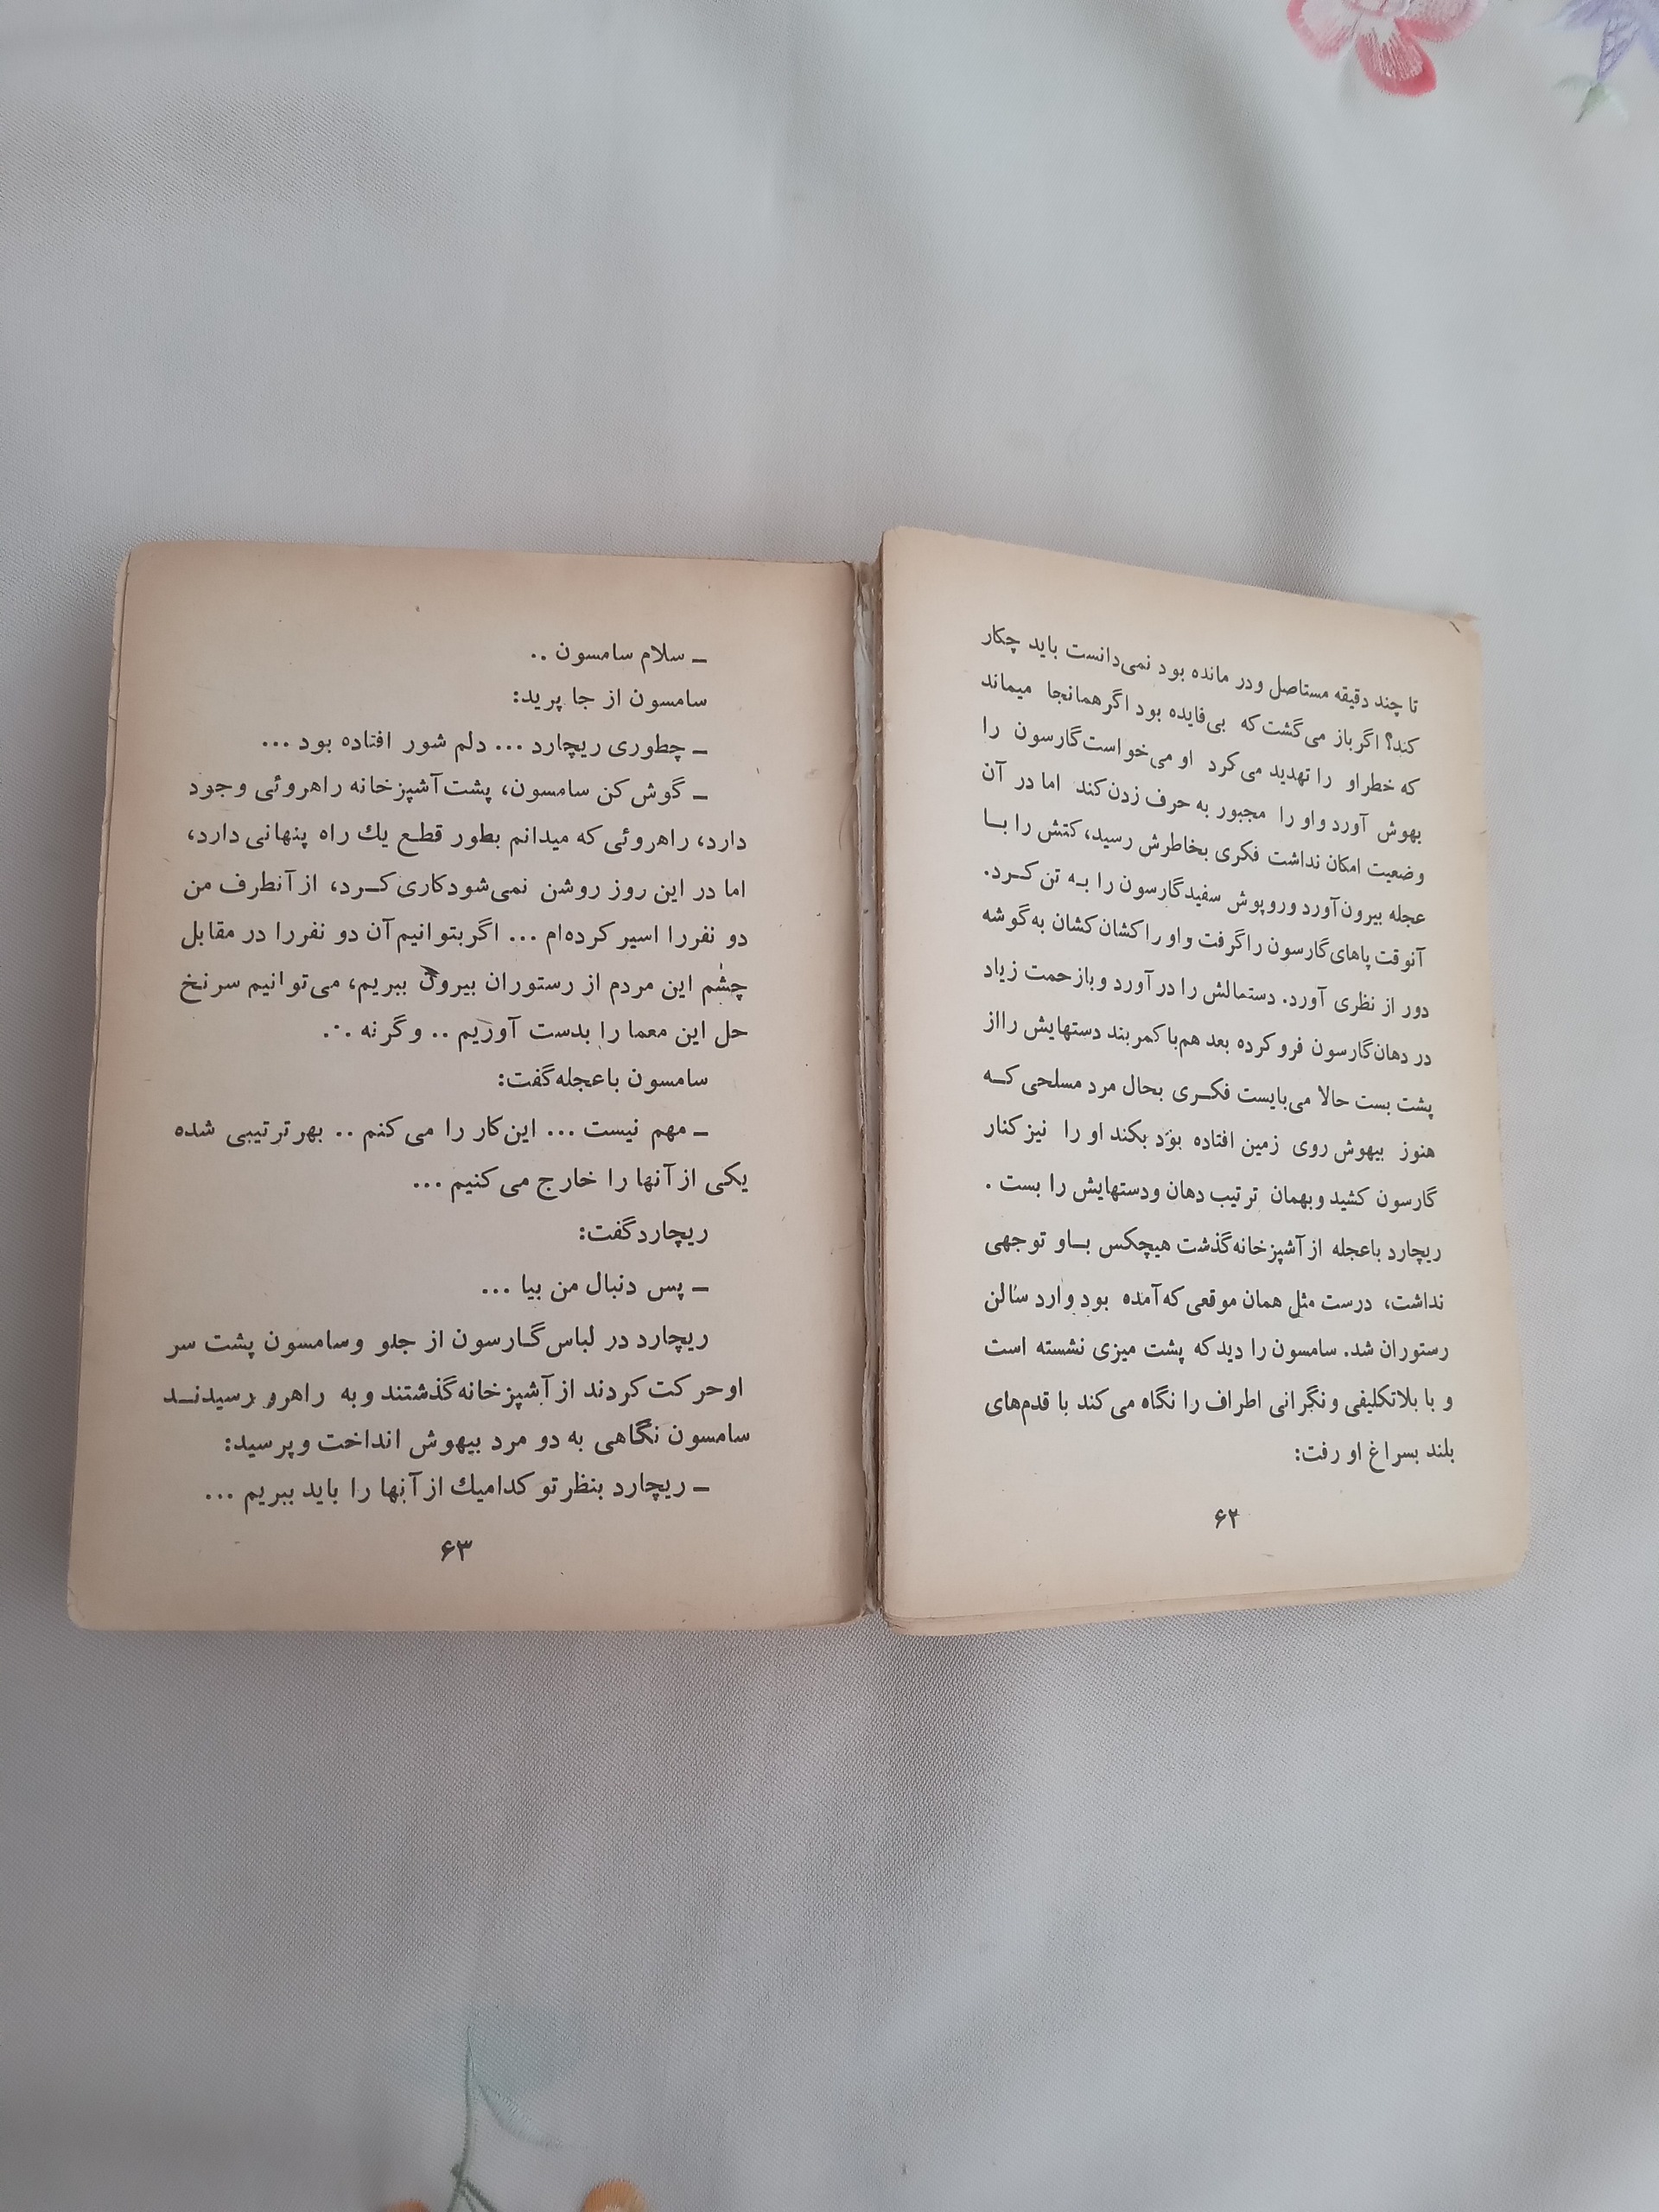 تا چند دقیقه مستاصل ودر مانده بود نمی‌دانست باید چکار
کند؟ اگر باز می‌گشت که بی‌فایده بود اگر همانجا میماند
که خطر او را تهدید می‌کرد او می‌خواست گارسون را
بهوش آورد واو را مجبور به حرف زدن کند اما در آن
وضعیت امکان نداشت فکری بخاطرش رسید، کتش را بـا
عجله بیرون آورد وروپوش سفید گارسون را بـه تن کـرد.
آنوقت پاهای گارسون را گرفت و او را کشان کشان به گوشه
دور از نظری آورد. دستمالش را در آورد و باز حمت زیاد
در دهان گارسون فرو کرده بعد هم با کمربند دستهایش رااز
پشت بست حالا می‌بایست فکـری بحال مرد مسلحی کـه
هنوز بیهوش روی زمین افتاده بود بکند او را نیز کنار
گارسون کشید و بهمان ترتیب دهان ودستهایش را بست .
ریچارد باعجله از آشپزخانه گذشت هیچکس بـاو توجهی
نداشت، درست مثل همان موقعی که آمده بود وارد سالن
رستوران شد. سامسون را دید که پشت میزی نشسته است
و با بلاتکلیفی و نگرانی اطراف را نگاه می کند با قدم‌های
بلند بسراغ او رفت:
۶۲
ـ سلام سامسون ..
سامسون از جا پرید:
ـ چطوری ریچارد ... دلم شور افتاده بود ...
ـ گوش کن سامسون، پشت آشپزخانه راهروئی وجود
دارد، راهروئی که میدانم بطور قطع یك راه پنهانی دارد،
اما در این روز روشن نمی‌شود کاری کـرد، از آنطرف من
دو نفر را اسیر کرده‌ام ... اگر بتوانیم آن دو نفر را در مقابل
چشم این مردم از رستوران بیرون ببریم، می‌توانیم سر نخ
حل این معما را بدست آوریم .. و گرنه ...
سامسون باعجله گفت:
ـ مهم نیست ... این کار را می کنم .. بهر ترتیبی شده
یکی از آنها را خارج می کنیم ...
ریچارد گفت:
ـ پس دنبال من بیا ...
ریچارد در لباس گـارسون از جلو وسامسون پشت سر
او حرکت کردند از آشپزخانه گذشتند و به راهرو رسیدنـد
سامسون نگاهی به دو مرد بیهوش انداخت و پرسید:
ـ ریچارد بنظر تو کدامیك از آنها را باید ببریم ...
۶۳